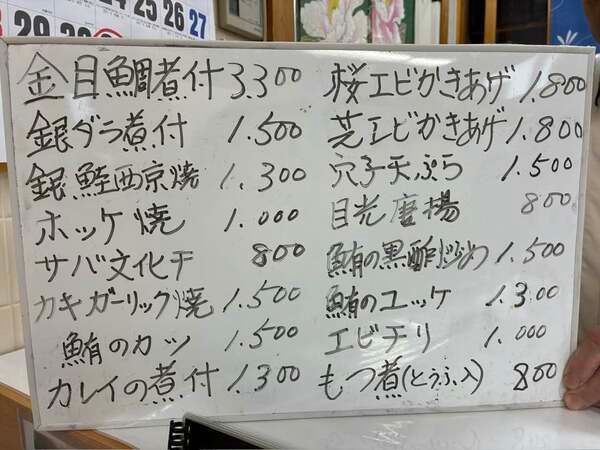 24 25 26 27
29 30 31
金目鯛煮付 3.300
銀ダラ煮付 1.500
銀鮭西京焼 1.300
ホッケ焼 1.000
サバ文化干 800
カキガーリック焼 1.500
鮪のカツ 1.500
カレイの煮付 1.300
桜エビかきあげ 1.800
芝エビかきあげ 1.800
穴子天ぷら 1.500
目光唐揚 800
鮪の黒酢炒め 1.500
鮪のユッケ 1.300
エビチリ 1.000
もつ煮(とうふ入) 800